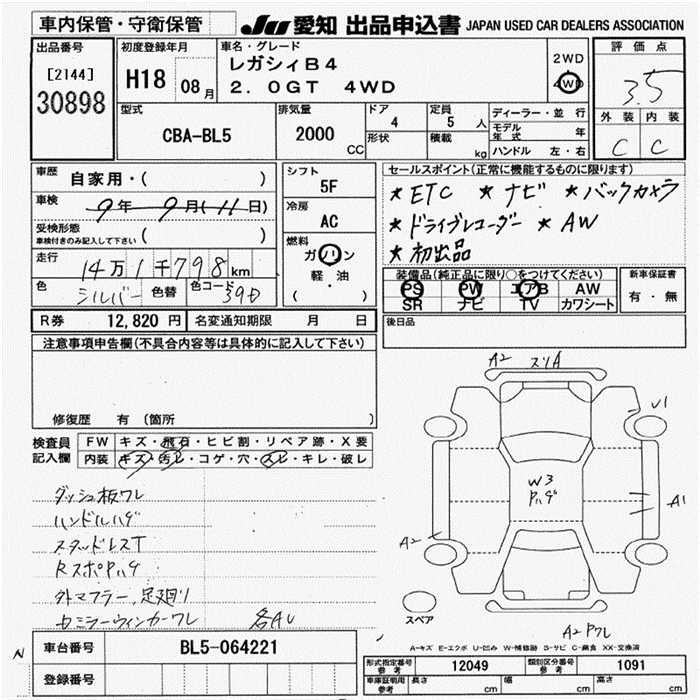 車内保管・守衛保管
JU 愛知 出品申込書 JAPAN USED CAR DEALERS ASSOCIATION
出品番号
[2144]
30898
初度登録年月
H18 08月
車名・グレード
レガシィB4
2.0GT 4WD
2WD
4WD
評価点
3.5
外装 内装
C C
型式
CBA-BL5
排気量
2000 CC
ドア
4
形状
定員
5 人
積載
kg
ディーラー・並行
モデル年式 年
ハンドル 左・右
車歴
自家用・( )
車検
9年 9月(11日)
受検形態
車検付きのみ記入して下さい ( )
走行
14万1千798km
色
シルバー
色替
色コード
39D
シフト
5F
冷房
AC
燃料
ガソリン
軽・油
( )
セールスポイント(正常に機能するものに限ります)
★ETC ★ナビ ★バックカメラ
★ドライブレコーダー ★AW
★初出品
装備品(純正品に限り○をつけてください)
PS PW エアB AW
SR ナビ TV カワシート
新車保証書
有・無
後日品
R券 12,820円 名変通知期限 月 日
注意事項申告欄(不具合内容等は具体的に記入して下さい)
修復歴 有 (箇所 )
検査員記入欄
FW キズ・飛石・ヒビ割・リペア跡・X要
内装 キズ・汚レ・コゲ・穴・スレ・キレ・破レ
ダッシュ板ワレ
ハンドルハゲ
スタッドレスT
RスポPハゲ
外マフラー,足廻り
セミラーウィンカーワレ 各AU
A2 スリA
U1
W3
Pハゲ
A1
A2
スペア
A2 Pワレ
A-キズ E-エクボ U-凹み W-補修跡 S-サビ C-腐食 XX-交換済
N
車台番号 BL5-064221
登録番号
形式指定番号 参考 12049 類別区分番号 参考 1091
車庫証明用 参考 長さ cm 幅 cm 高さ cm